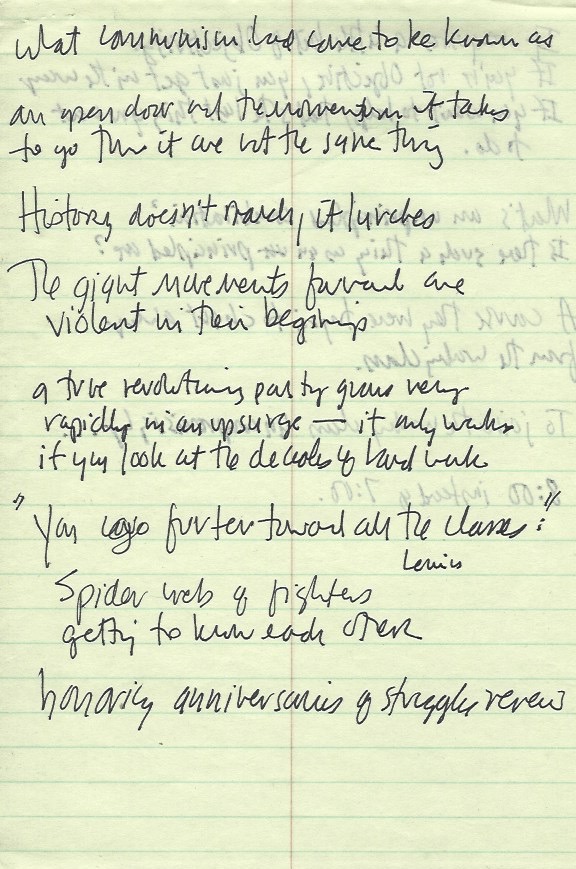 What communism had come to be known as
an open door and the momentum it takes
to go thru it are not the same thing
History doesn't march, it lurches
The giant movements forward are
violent in their beginnings
a true revolutionary party grows very
rapidly in an upsurge — it only works
if you look at the decades of hard work
"You go further toward all the classes:"
Lenin's
Spider web of fighters
getting to know each other
honoring anniversaries of struggles